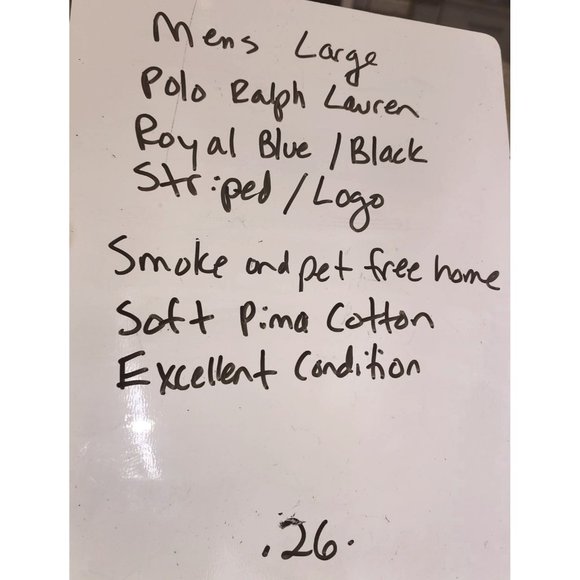 Mens Large
Polo Ralph Lauren
Royal Blue / Black
Striped / Logo
Smoke and pet free home
Soft Pima Cotton
Excellent Condition
.26.